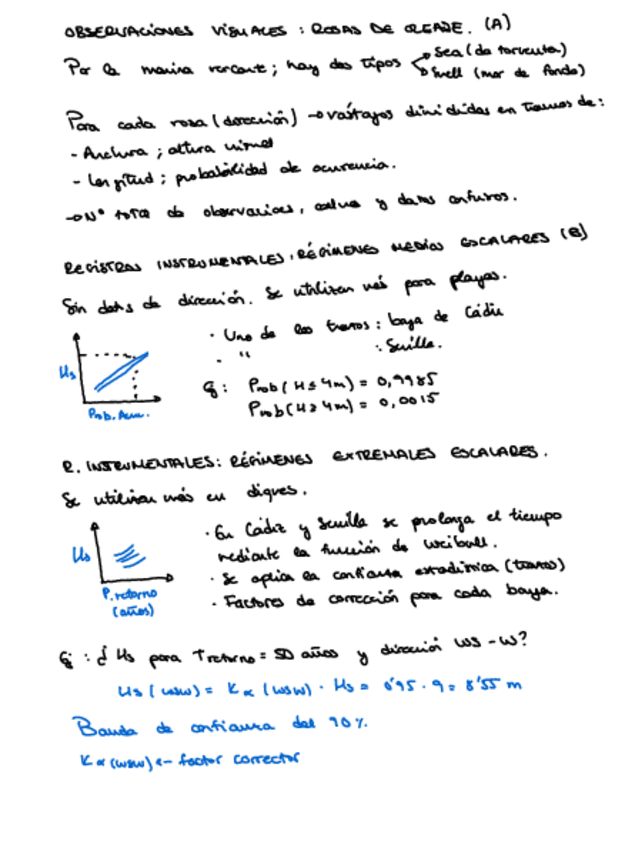 OBSERVACIONES VISUALES : ROSAS DE OLEAJE. (A)
Por la marina mercante; hay dos tipos
Sea (de tormenta)
Swell (mar de fondo)
Para cada rosa (dirección) → vástagos divididas en tramos de:
- Anchura ; altura visual
- Longitud ; probabilidad de ocurrencia.
→ Nº total de observaciones, calmas y datos confusos.
REGISTROS INSTRUMENTALES: RÉGIMENES MEDIOS ESCALARES (B)
Sin datos de dirección. Se utilizan más para playas.
Hs
Prob. Acum.
· Uno de los tramos : baya de Cádiz
· " : Sevilla.
Prob (H ≤ 4m) = 0,9985
Prob (H ≥ 4m) = 0,0015
R. INSTRUMENTALES: RÉGIMENES EXTREMALES ESCALARES.
Se utilizan más en diques.
Hs
P. retorno
(años)
· En Cádiz y Sevilla se prolonga el tiempo
mediante la función de Weibull.
· Se aplica la confianza estadística (tramos)
· Factores de corrección para cada baya.
¿ Hs para Tretorno = 50 años y dirección WS - W?
Hs (WSW) = Kα (WSW) · Hs = 0'95 · 9 = 8'55 m
Banda de confianza del 90 %.
Kα (WSW) ← factor corrector